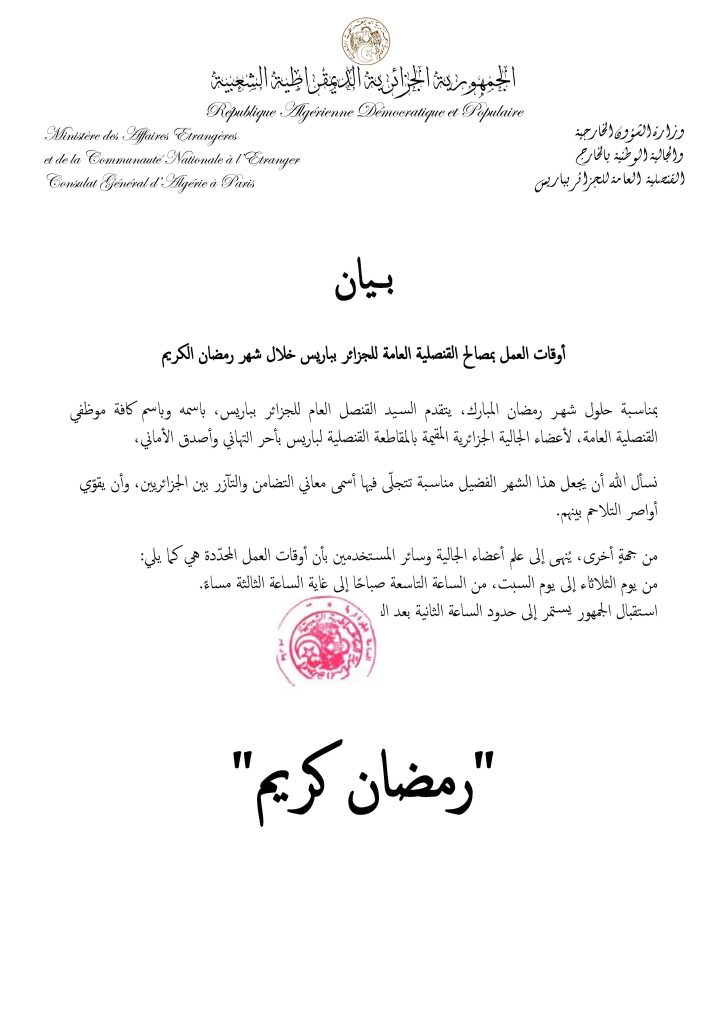 الجمهورية الجزائرية الديمقراطية الشعبية
République Algérienne Démocratique et Populaire
Ministère des Affaires Etrangères
et de la Communauté Nationale à l'Etranger
Consulat Général d'Algérie à Paris
وزارة الشؤون الخارجية
والجالية الوطنية بالخارج
القنصلية العامة للجزائر بباريس
بـيـان
أوقات العمل بمصالح القنصلية العامة للجزائر بباريس خلال شهر رمضان الكريم
بمناسبة حلول شهر رمضان المبارك، يتقدم السيد القنصل العام للجزائر بباريس، باسمه وباسم كافة موظفي
القنصلية العامة، لأعضاء الجالية الجزائرية المقيمة بالمقاطعة القنصلية لباريس بأحر التهاني وأصدق الأماني،
نسأل الله أن يجعل هذا الشهر الفضيل مناسبة تتجلّى فيها أسمى معاني التضامن والتآزر بين الجزائريين، وأن يقوّي
أواصر التلاحم بينهم.
من جهةٍ أخرى، يُنهى إلى علم أعضاء الجالية وسائر المستخدمين بأن أوقات العمل المحدّدة هي كما يلي:
من يوم الثلاثاء إلى يوم السبت، من الساعة التاسعة صباحًا إلى غاية الساعة الثالثة مساءً.
استقبال الجمهور يستمر إلى حدود الساعة الثانية بعد
"رمضان كريم"